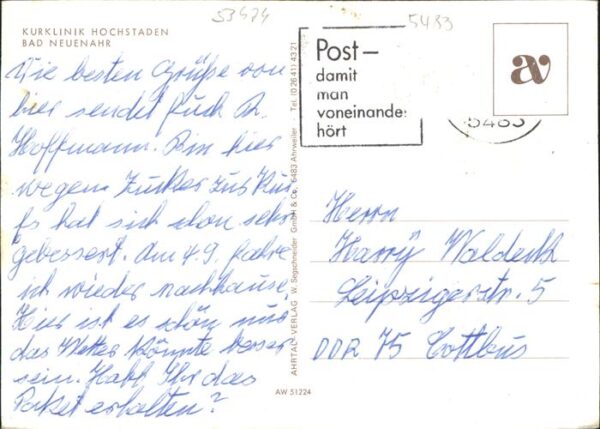 53474
5483
KURKLINIK HOCHSTADEN
BAD NEUENAHR
Die besten Grüße von
hier sendet Euch R.
Hoffmann. Bin hier
wegen Zucker zur Kur
Es hat sich schon sehr
gebessert. Am 4.9. fahre
ich wieder nachhause
Hier ist es schön nur
das Wetter könnte besser
sein. Habt Ihr das
Paket erhalten?
AHRTAL-VERLAG W. Segschneider GmbH & Co. 5483 Ahrweiler Tel. (0 26 41) 43 21
AW 51224
Post –
damit
man
voneinander
hört
5483
av
Herrn
Harry Waldeck
Leipzigerstr. 5
DDR 75 Cottbus